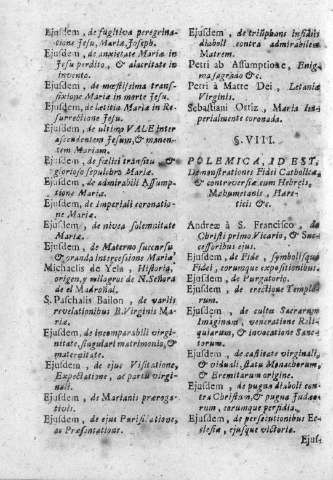 Ejusdem, de fugitiva peregrina-
tione Jesu, Mariæ, Joseph.
Ejusdem, de anxietate Mariæ in
Jesu perdito, & alacritate in
invento.
Ejusdem, de mœstissima trans-
fixione Mariæ in morte Jesu.
Ejusdem, de lætitia Mariæ in Re-
surrectione Jesu.
Ejusdem, de ultimo VALE inter
ascendentem Jesum, & manen-
tem Mariam.
Ejusdem, de fœlici transitu &
glorioso sepulchro Mariæ.
Ejusdem, de admirabili Assump-
tione Mariæ.
Ejusdem, de Imperiali coronatio-
ne Mariæ.
Ejusdem, de nivea solemnitate
Mariæ.
Ejusdem, de Materno succursu
& oranda intercessione Mariæ.
Michaelis de Yela, Historia,
origen, y milagros de N. Señora
de el Madroñal.
S. Paschalis Bailon, de variis
revelationibus B. Virginis Ma-
riæ.
Ejusdem, de incomparabili virgi-
nitate, singulari matrimonio, &
maternitate.
Ejusdem, de ejus Visitatione,
Expectatione, ac partu virgi-
nali.
Ejusdem, de Marianis prærogati-
tivis.
Ejusdem, de ejus Purificatione,
ac Præsentatione.
Ejusdem, de triumphons insidiis
diaboli contra admirabilem
Matrem.
Petri ab Assumptione, Enig-
ma sagrado &c.
Petri à Matre Dei, Letaniæ
Virginis.
Sebastiani Ortiz, Maria Im-
perialmente coronada.
§. VIII.
POLEMICA, ID EST,
Demonstrationes Fidei Catholicæ,
& controversiæ cum Hebreis,
Mahumetanis, Hære-
ticis &c.
Andreæ à S. Francisco, de
Christi primo Vicario, & Suc-
cessoribus ejus.
Ejusdem, de Fide, symbolisque
Fidei, eorumque expositionibus.
Ejusdem, de Purgatorio.
Ejusdem, de erectione Templo-
rum.
Ejusdem, de cultu Sacrarum
Imaginum, veneratione Reli-
quiarum, & invocatione Sanc-
torum.
Ejusdem, de castitate virginali,
& viduali, statu Monachorum,
& Eremitarum origine.
Ejusdem, de pugna diaboli con-
tra Christum, & pugna Judæo-
rum, eorumque perfidia.
Ejusdem, de persecutionibus Ec-
clesiæ, ejusque victoria.
Ejus-